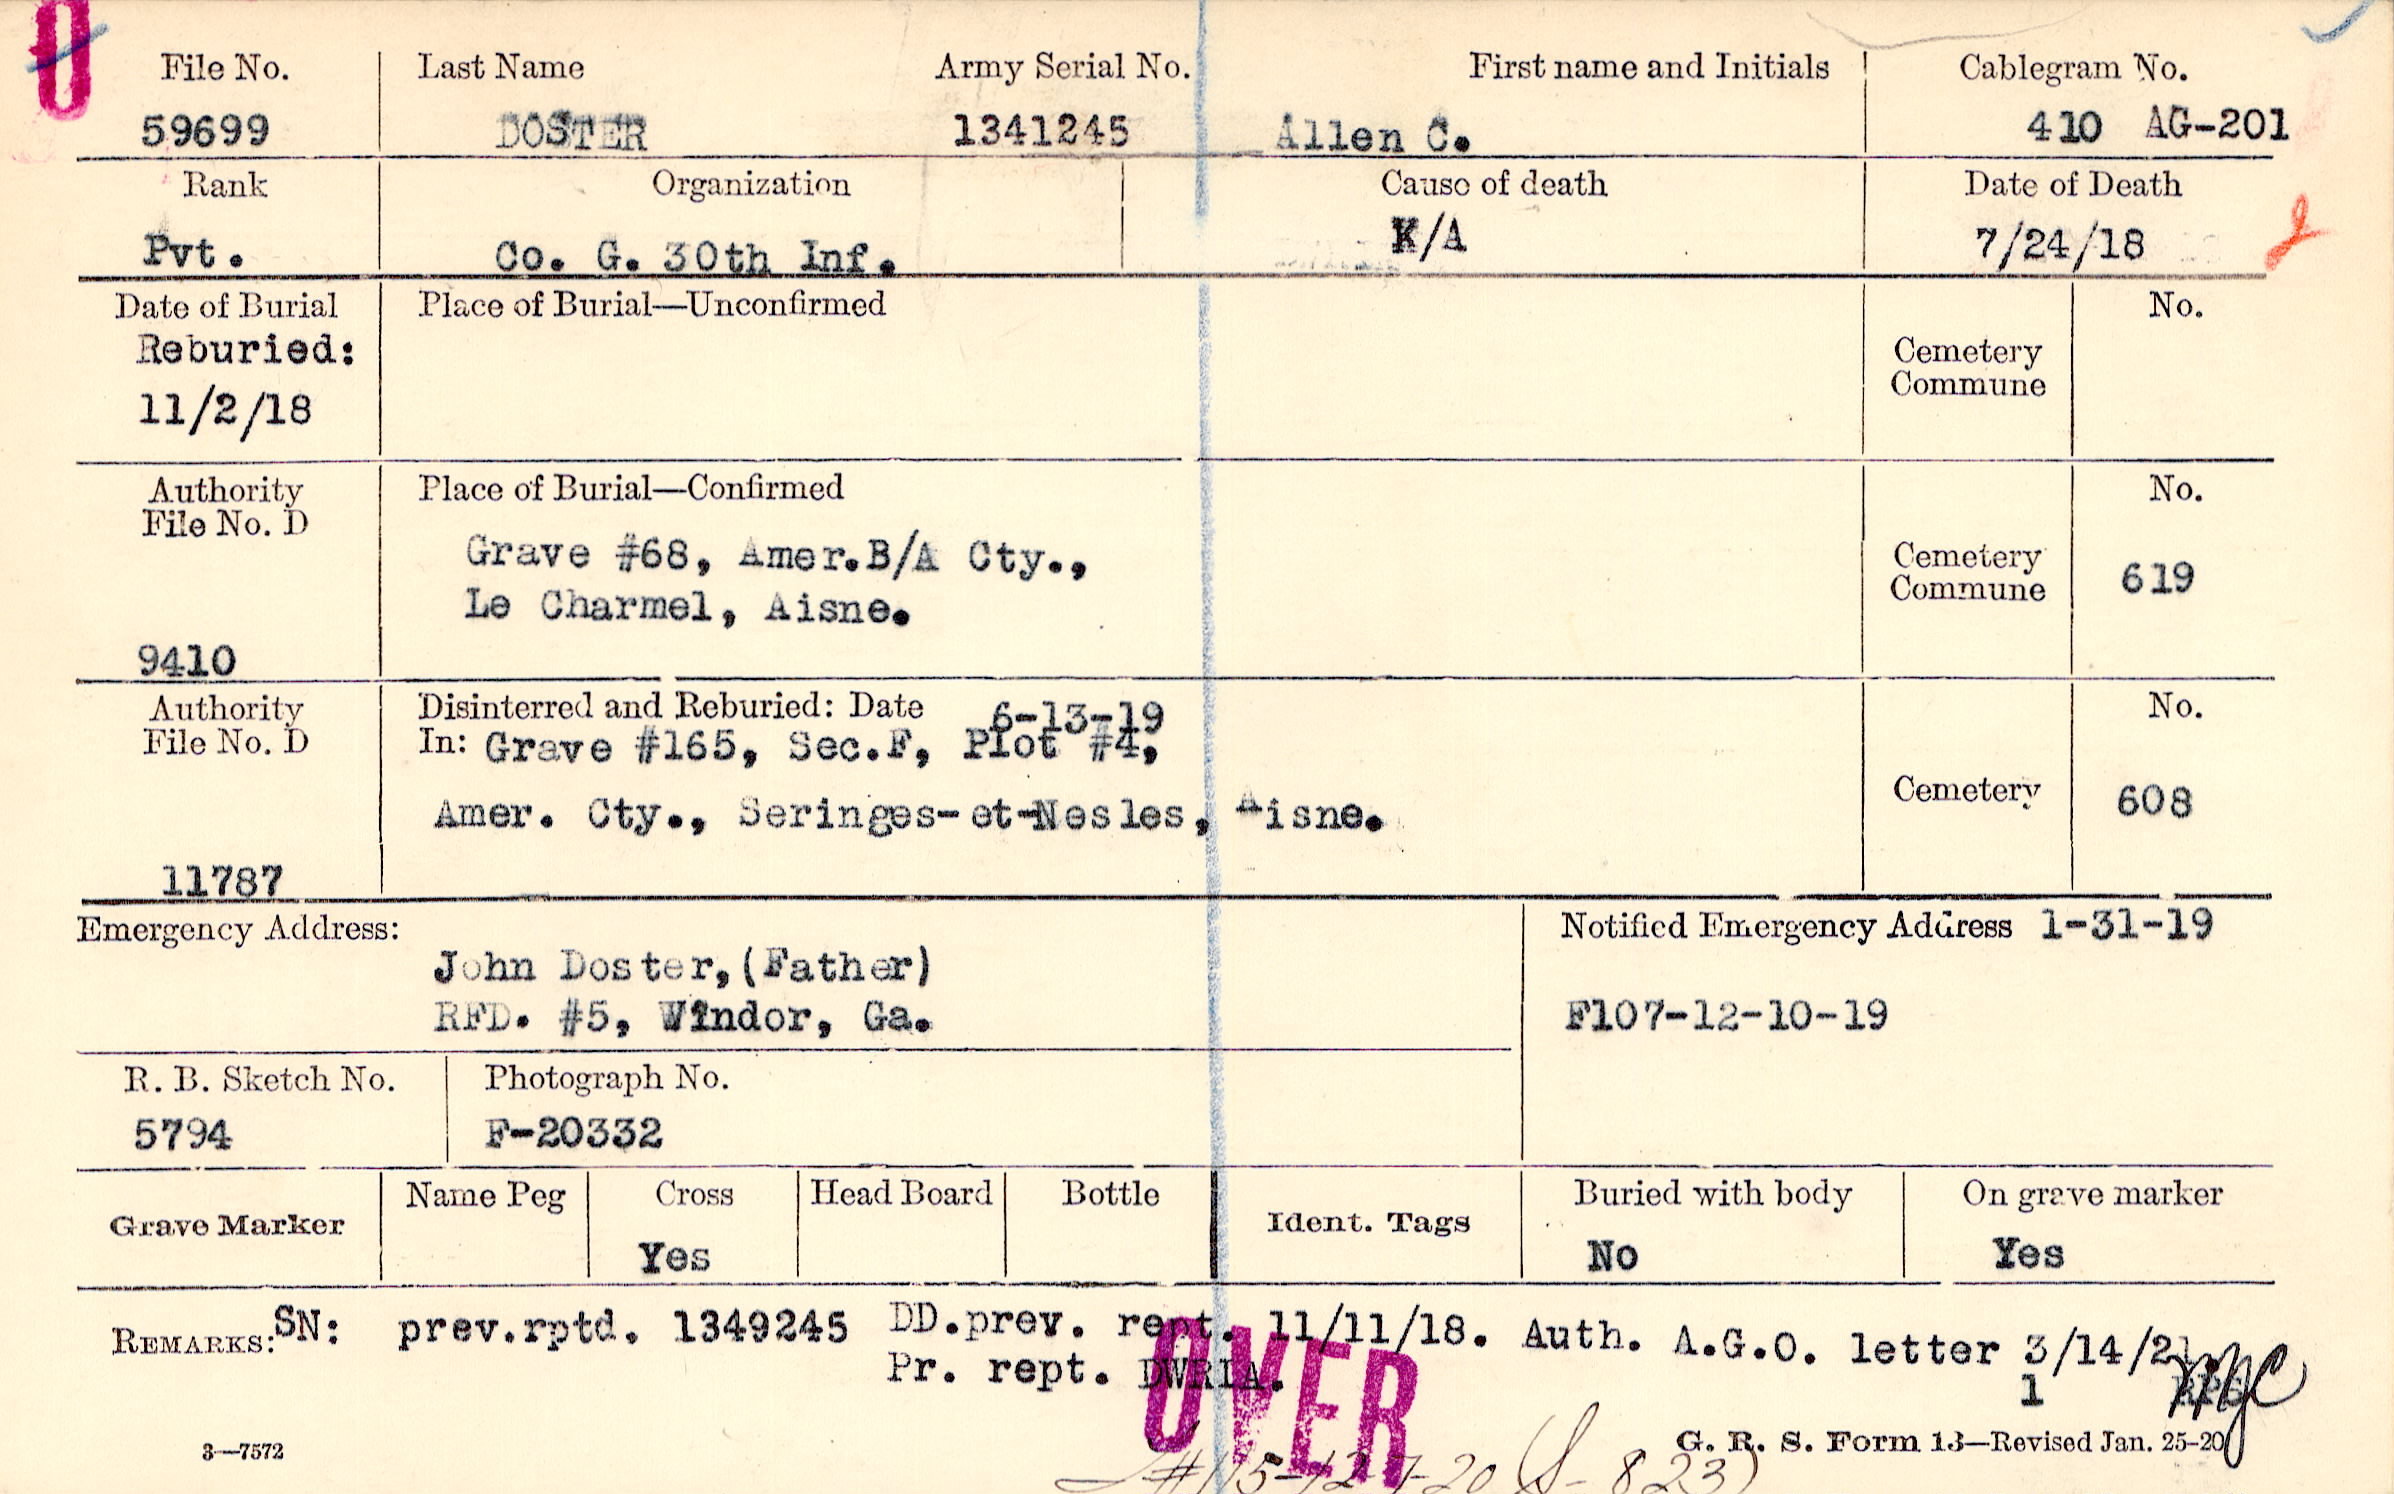 File No. Last Name Army Serial No. First name and Initials Cablegram No.
59699 DOSTER 1341245 Allen C. 410 AG-201
Rank Organization Cause of death Date of Death
Pvt. Co. G. 30th Inf. K/A 7/24/18
Date of Burial Place of Burial—Unconfirmed No.
Reburied:
11/2/18
Cemetery
Commune
Authority Place of Burial—Confirmed No.
File No. D
Grave #68, Amer.B/A Cty.,
Le Charmel, Aisne.
Cemetery
Commune
619
9410
Authority Disinterred and Reburied: Date 6-13-19 No.
File No. D In: Grave #165, Sec.F, Plot #4,
Amer. Cty., Seringes-et-Nesles, Aisne.
Cemetery 608
11787
Emergency Address: Notified Emergency Address 1-31-19
John Doster,(Father)
RFD. #5, Windor, Ga. F107-12-10-19
R. B. Sketch No. Photograph No.
5794 F-20332
Grave Marker Name Peg Cross Head Board Bottle Ident. Tags Buried with body On grave marker
Yes No Yes
REMARKS: SN: prev.rptd. 1349245 DD.prev. rept. 11/11/18. Auth. A.G.O. letter 3/14/21.
Pr. rept. DWRIA. 1
OVER
3—7572 G. R. S. Form 13—Revised Jan. 25-20